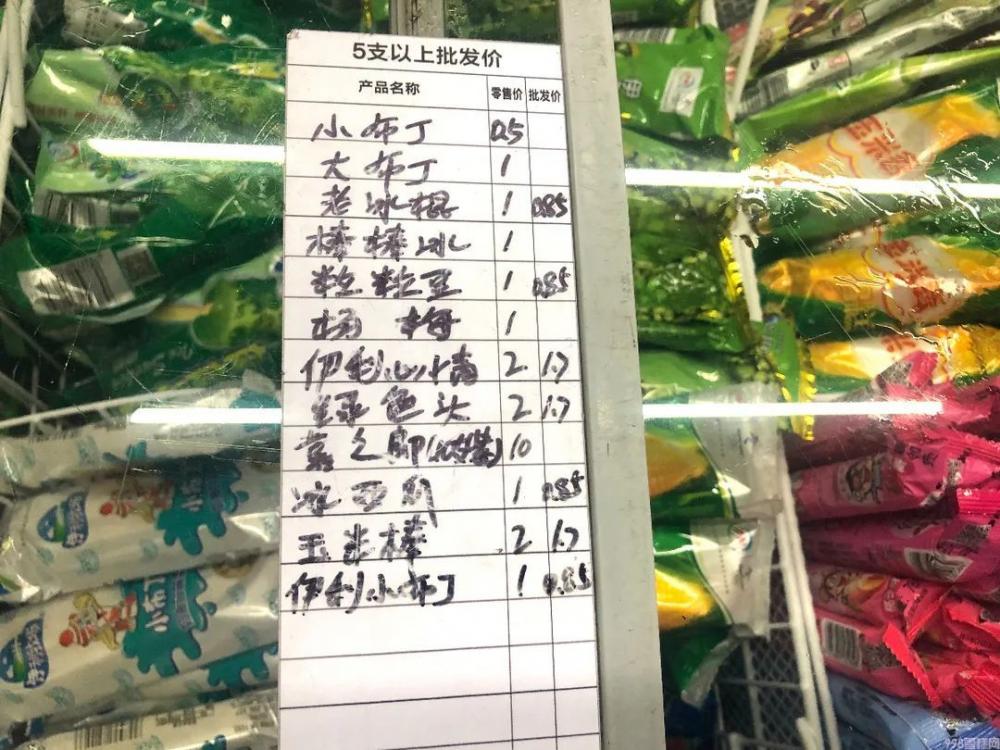 5支以上批发价
产品名称 零售价 批发价
小布丁 0.5
大布丁 1
老冰棍 1 0.85
棒棒冰 1
粒粒豆 1 0.85
杨梅 1
伊利心情 2 1.7
绿色 头 2 1.7
10
冰 1 0.85
玉米棒 2 1.7
伊利小布丁 1 0.85
小布丁